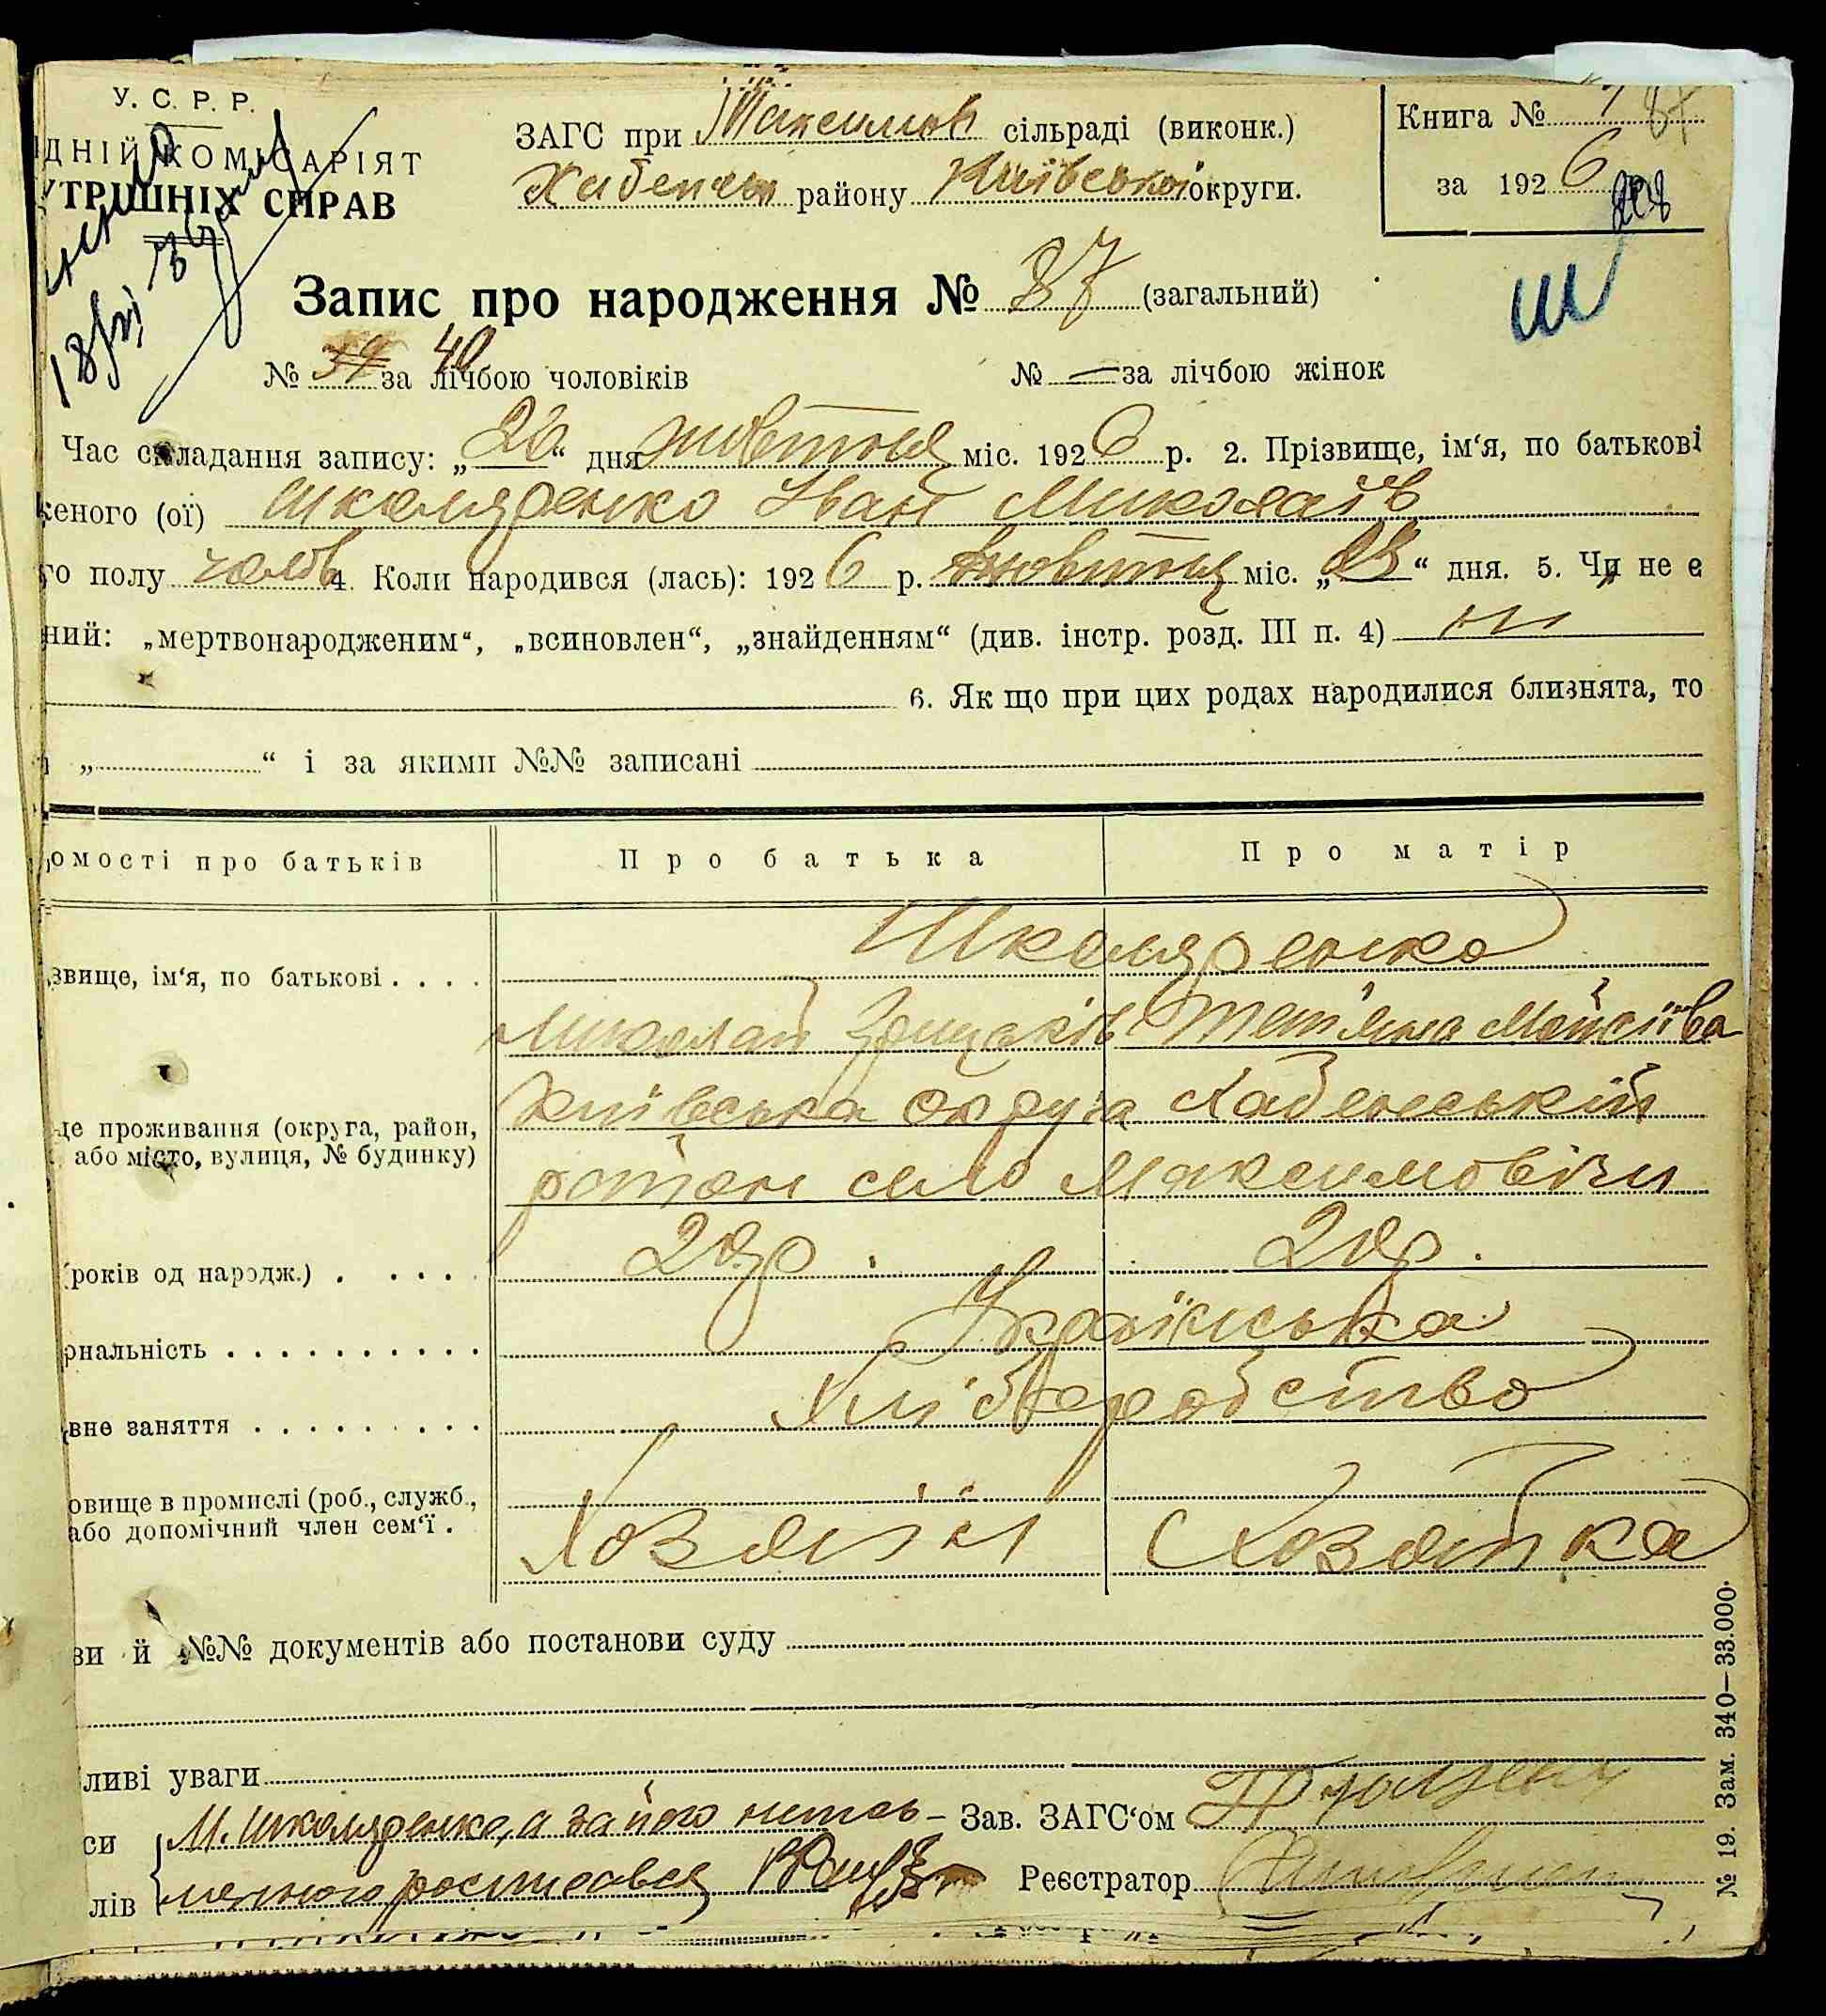 У. С. Р. Р.
ДНІЙ КОМІСАРІЯТ
УТРІШНІХ СПРАВ
ЗАГС при Максимов сільраді (виконк.)
Хабенськ району Київської округи.
Книга № 87
за 1926
Запис про народження № 87 (загальний)
ш
№ 39 40 за лічбою чоловіків № — за лічбою жінок
Час складання запису: „26“ дня жовтня міс. 1926 р. 2. Прізвище, ім‘я, по батькові
женого (ої) Школяренко Іван Миколаїв
го полу чолов 4. Коли народився (лась): 1926 р. жовтня міс. „23“ дня. 5. Чи не є
ний: „мертвонародженим“, „всиновлен“, „знайденням“ (див. інстр. розд. III п. 4) ні
6. Як що при цих родах народилися близнята, то
„ “ і за якими №№ записані
омості про батьків Про батька Про матір
Школяренко
звище, ім‘я, по батькові . . . .
Миколай Грицаків Тетяна Мойсіїва
Київська округа Хабенський
це проживання (округа, район,
або місто, вулиця, № будинку)
район село Максимовичи
(років од народж.) . . . . 20 р. 20 р.
ональність . . . . . . . . . . Українська
вне заняття . . . . . . . . . Хліборобство
овище в промислі (роб., служб.,
або допомічний член сем‘ї .
Хозяїн Хозяйка
ви й №№ документів або постанови суду
ливі уваги
си М. Школяренко, а за його непис– Зав. ЗАГС‘ом
лів менного росписався Реєстратор
№ 19. Зам. 340—33.000.